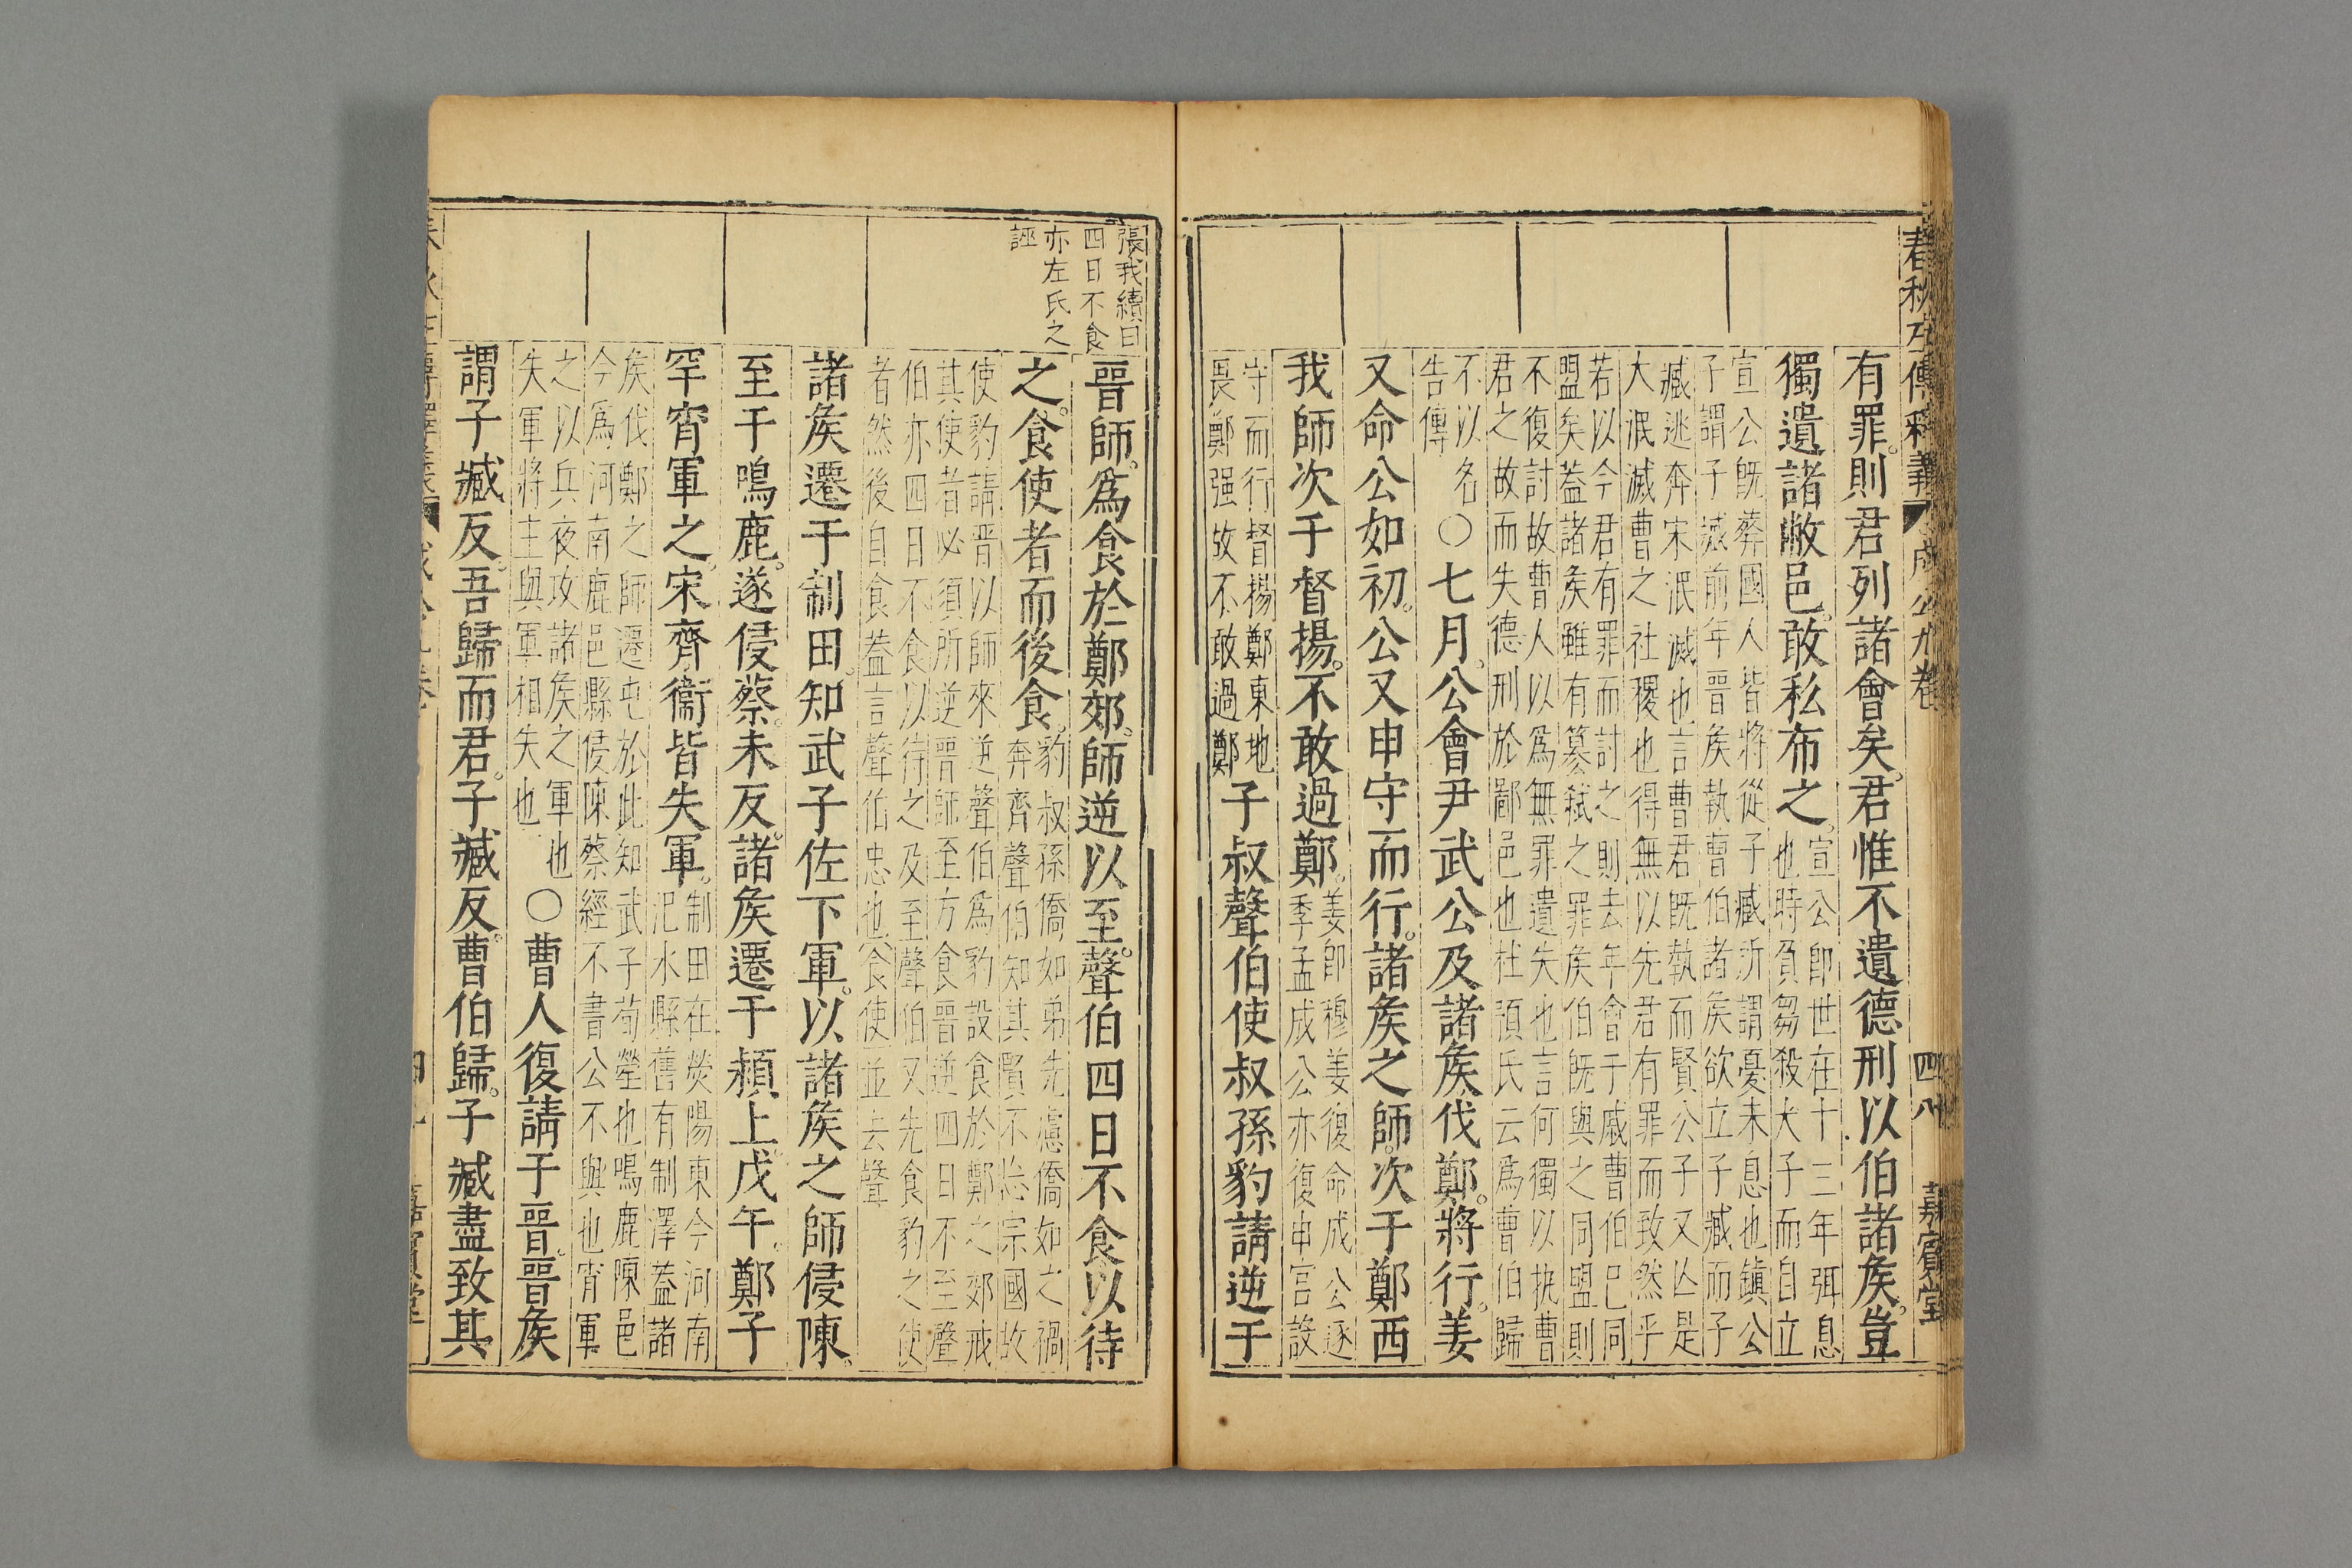 春秋左傳釋義 成公九卷 四八 嘉賓堂
有罪則君列諸會矣君惟不遺德刑以伯諸矦豈
獨遺諸敝邑敢私布之
宣公卽世在十三年弭息
也時負芻殺大子而自立
宣公既葬國人皆將從子臧所謂憂未息也鎭公
子謂子臧前年晋矦執曹伯諸矦欲立子臧而子
臧逃奔宋泯滅也言曹君既執而賢公子又亾是
大泯滅曹之社稷也得無以先君有罪而致然乎
若以今君有罪而討之則去年會于戚曹伯已同
盟矣蓋諸矦雖有簒弑之罪矦伯既與之同盟則
不復討故曹人以爲無罪遺失也言何獨以執曹
君之故而失德刑於鄙邑也杜預氏云爲曹伯歸
不以名
告傳
〇七月公會尹武公及諸矦伐鄭將行姜
又命公如初公又申守而行諸矦之師次于鄭西
我師次于督揚不敢過鄭
姜卽穆姜復命成公逐
季孟成公亦復申宫設
守而行督揚鄭東地
畏鄭强故不敢過鄭
子叔聲伯使叔孫豹請逆于
張我續曰
四日不食
亦左氏之
誣
晋師爲食於鄭郊師逆以至聲伯四日不食以待
之食使者而後食
豹叔孫僑如弟先慮僑如之禍
奔齊聲伯知其賢不忘宗國故
使豹請晋以師來逆聲伯爲豹設食於鄭之郊戒
其使者必須所逆晋師至方食晋逆四日不至聲
伯亦四日不食以待之及至聲伯又先食豹之使
者然後自食蓋言聲伯忠也食使並去聲
諸矦遷于制田知武子佐下軍以諸矦之師侵陳
至于鳴鹿遂侵蔡未反諸矦遷于頴上戊午鄭子
罕宵軍之宋齊衞皆失軍
制田在熒陽東今河南
汜水縣舊有制澤蓋諸
矦伐鄭之師遷屯於此知武子荀罃也鳴鹿陳邑
今爲河南鹿邑縣侵陳蔡經不書公不與也宵軍
之以兵夜攻諸矦之軍也
失軍將主與軍相失也
〇曹人復請于晋晋矦
謂子臧反吾歸而君子臧反曹伯歸子臧盡致其